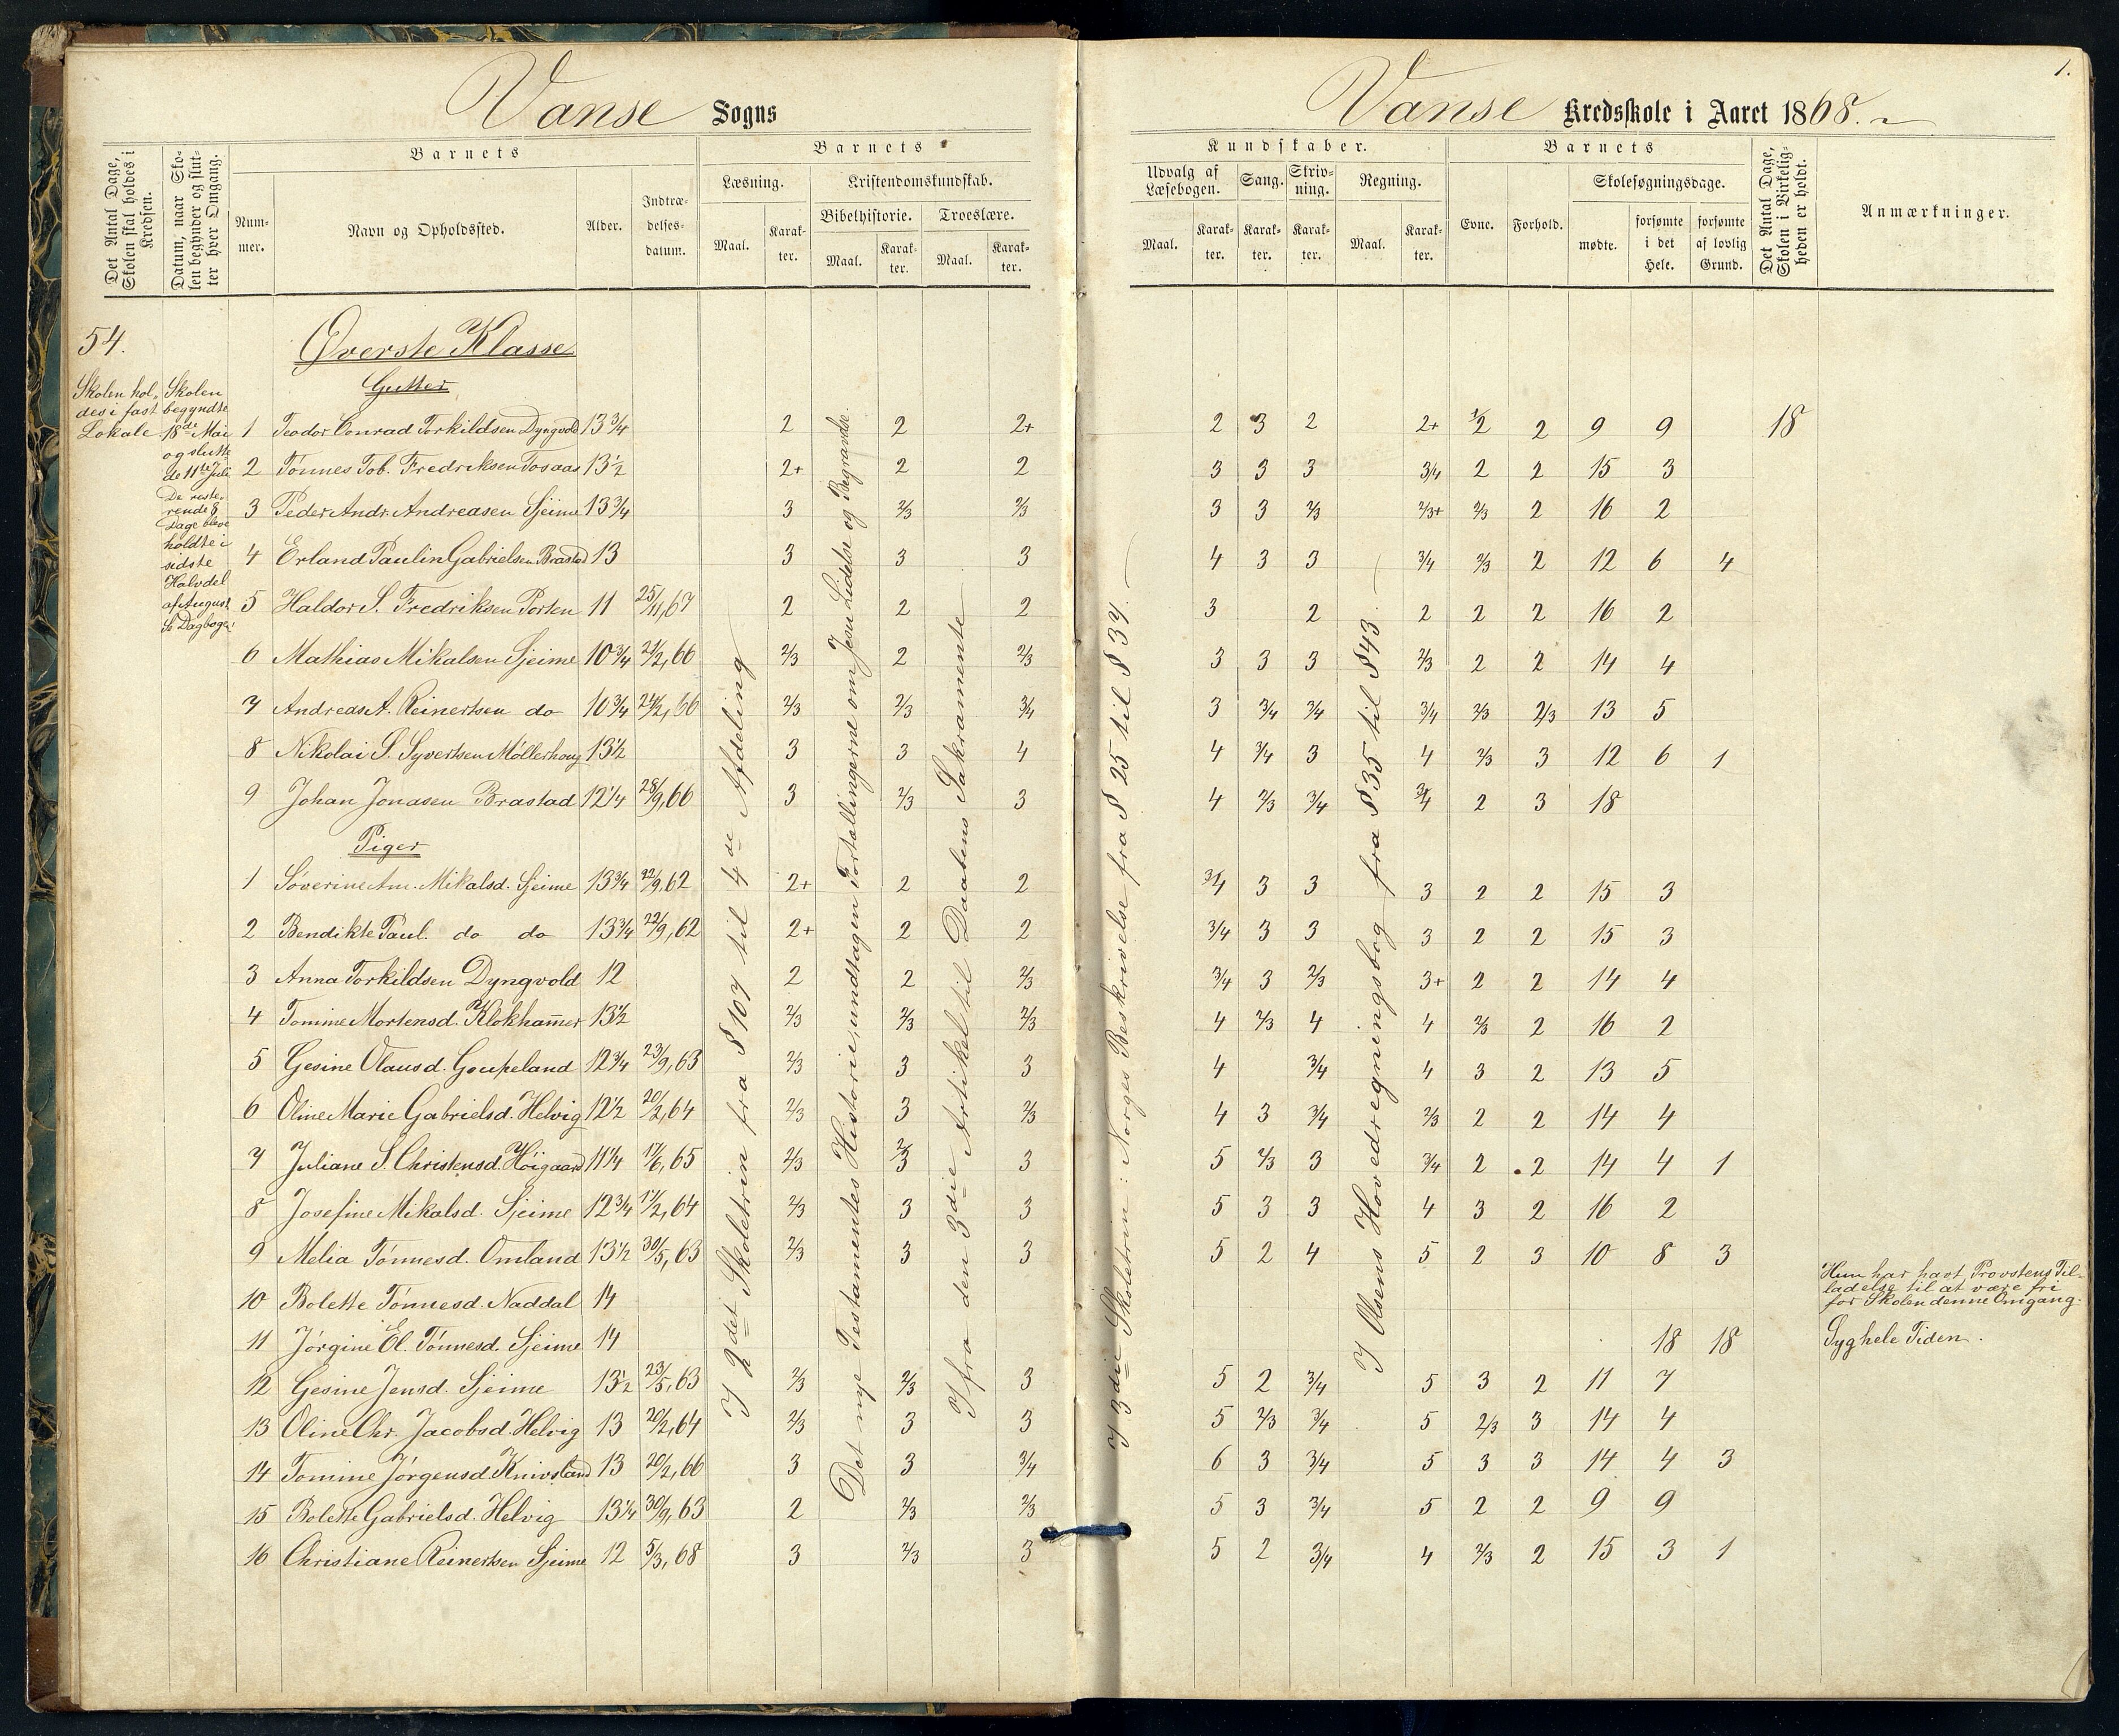 Vanse Sogns
Det Antal Dage, Skolen skal holdes i Kredsen.
Datum, naar Skolen begynder og slutter hver Omgang.
Barnets
Nummer.
Navn og Opholdssted.
Alder.
Indtrædelsesdatum.
Barnets
Læsning.
Kristendomskundskab.
Bibelhistorie.
Troeslære.
Maal.
Karakter.
Maal.
Karakter.
Maal.
Karakter.
54.
Skolen holdes i fast Lokale
Skolen begyndte 18de Mai og sluttede 11te Juli
De resterende 8 Dage bleve holdte i sidste Halvdel af August
Øverste Klasse
Gutter
1 Teodor Conrad Torkildsen Dyngvold 13 3/4 2 2 2+
2 Tønnes Tob. Fredriksen Tosaas 13 1/2 2+ 2 2
3 Peder Andr. Andreasen Sjeime 13 3/4 3 2/3 2/3
4 Erland Paulin Gabrielsen Brastad 13 3 3 3
5 Haldor S. Fredriksen Porten 11 25/11,67 2 2 2
6 Mathias Mikalsen Sjeime 10 3/4 21/2,66 2/3 2 2/3
7 Andreas A. Reinertsen do 10 3/4 24/2,66 2/3 2/3 3/4
8 Nikolai S. Syvertsen Möllerhoug 13 1/2 3 3 4
9 Johan Jonasen Brastad 12 1/4 28/9,66 3 2/3 3
Piger
1 Søverine Am. Mikalsd. Sjeime 13 3/4 22/9,62 2+ 2 2
2 Bendikte Paul. do do 13 3/4 22/9,62 2+ 2 2
3 Anna Torkildsen Dyngvold 12 2 2 2/3
4 Tomine Mortensd. Klokham̄er 13 1/2 2/3 2/3 2/3
5 Gesine Olausd. Goupeland 12 3/4 23/9,63 2/3 3 3
6 Oline Marie Gabrielsd. Helvig 12 1/2 20/2,64 2/3 3 2/3
7 Juliane S. Christensd. Høigaard 11 1/4 17/6,65 2/3 2/3 3
8 Josefine Mikalsd. Sjeime 12 3/4 17/2,64 2/3 3 3
9 Melia Tønnesd. Omland 13 1/2 30/5,63 2/3 3 3
10 Bolette Tønnesd. Naddal 14
11 Jørgine El. Tønnesd. Sjeime 14
12 Gesine Jensd. Sjeime 13 1/2 23/5,63 2/3 2/3 3
13 Oline Chr. Jacobsd. Helvig 13 20/2,64 2/3 3 3
14 Tomine Jørgensd. Knivsland 13 20/2,66 3 3 3/4
15 Bolette Gabrielsd. Helvig 13 1/4 30/9,63 2 2/3 2/3
16 Christiane Reinertsen Sjeime 12 5/3,68 3 2/3 3
I 2det Skoletrin fra § 107 til 4de Afdeling
Det nye Testamentes Historie, undtagen Fortællingerne om Jesu Lidelse og Begravelse.
I fra den 3die Artikel til Daabens Sakramente
1.
Vanse Kredsskole i Aaret 1868.
Kundskaber.
Udvalg af Læsebogen.
Sang.
Skrivning.
Regning.
Maal.
Karakter.
Karakter.
Karakter.
Maal.
Karakter.
Barnets
Evne.
Forhold.
Skolesøgningsdage.
mødte.
forsømte i det Hele.
forsømte af lovlig Grund.
Det Antal Dage, Skolen i Virkeligheden er holdt.
Anmærkninger.
2 3 2 2+ 1/2 2 9 9 18
3 3 3 3/4 2 2 15 3
3 3 2/3 2/3+ 2/3 2 16 2
4 3 3 3/4 2/3 2 12 6 4
3 2 2 2 2 16 2
3 3 3 2/3 2 2 14 4
3 3/4 3/4 3/4 2/3 2/3 13 5
4 3/4 3 4 2/3 3 12 6 1
4 2/3 3/4 3/4 2 3 18
3/4 3 3 3 2 2 15 3
3/4 3 3 3 2 2 15 3
3/4 3 2/3 3+ 2 2 14 4
4 2/3 4 4 2/3 2 16 2
4 3/4 4 3 2 13 5
4 3 3/4 2/3 2 2 14 4
5 2/3 3 3/4 2 2 14 4 1
5 3 3 4 3 2 16 2
5 2 4 5 2 3 10 8 3
Hun har havt Provstens Tilladelse til at være fri for Skolen denne Omgang.
18 18 Syg hele Tiden.
5 2 3/4 5 3 2 11 7
5 2/3 3/4 5 2/3 3 14 4
6 3 3/4 5 3 3 14 4 3
5 3 3/4 5 2 2 9 9
5 2 3/4 4 2/3 2 15 3 1
I 3die Skoletrin: Norges Beskrivelse fra § 25 til § 34.
I Olsens Hovedregningsbog fra § 35 til § 43.